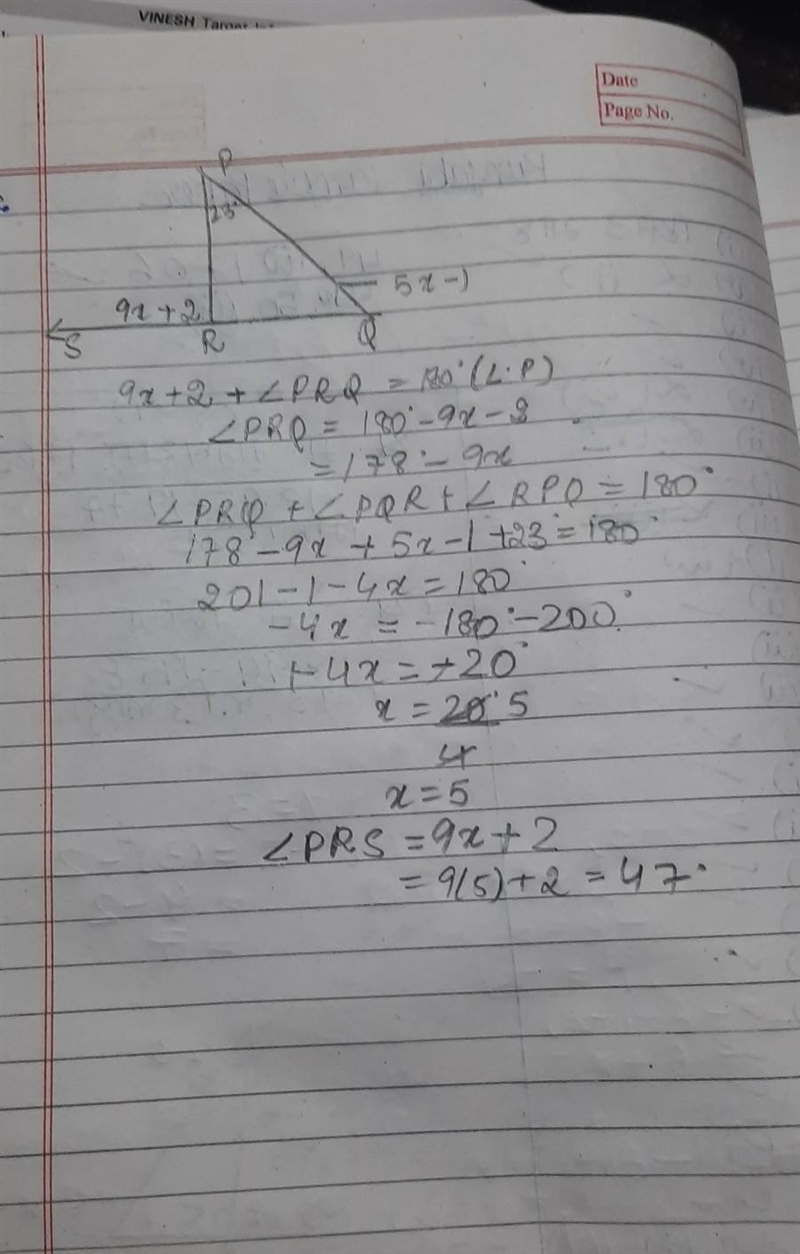 VINESH
Date
Page No.
P
23°
5x-1
9x+2
S
R
Q
9x+2+∠PRQ = 180° (L.P)
∠PRQ = 180°-9x-2
=178°-9x
∠PRQ +∠PQR+∠RPQ = 180°
178-9x+5x-1+23=180°
201-1-4x=180°
-4x = -180°-200°
+4x=+20°
x = 20° 5
4
x=5
∠PRS =9x+2
=9(5)+2 =47°